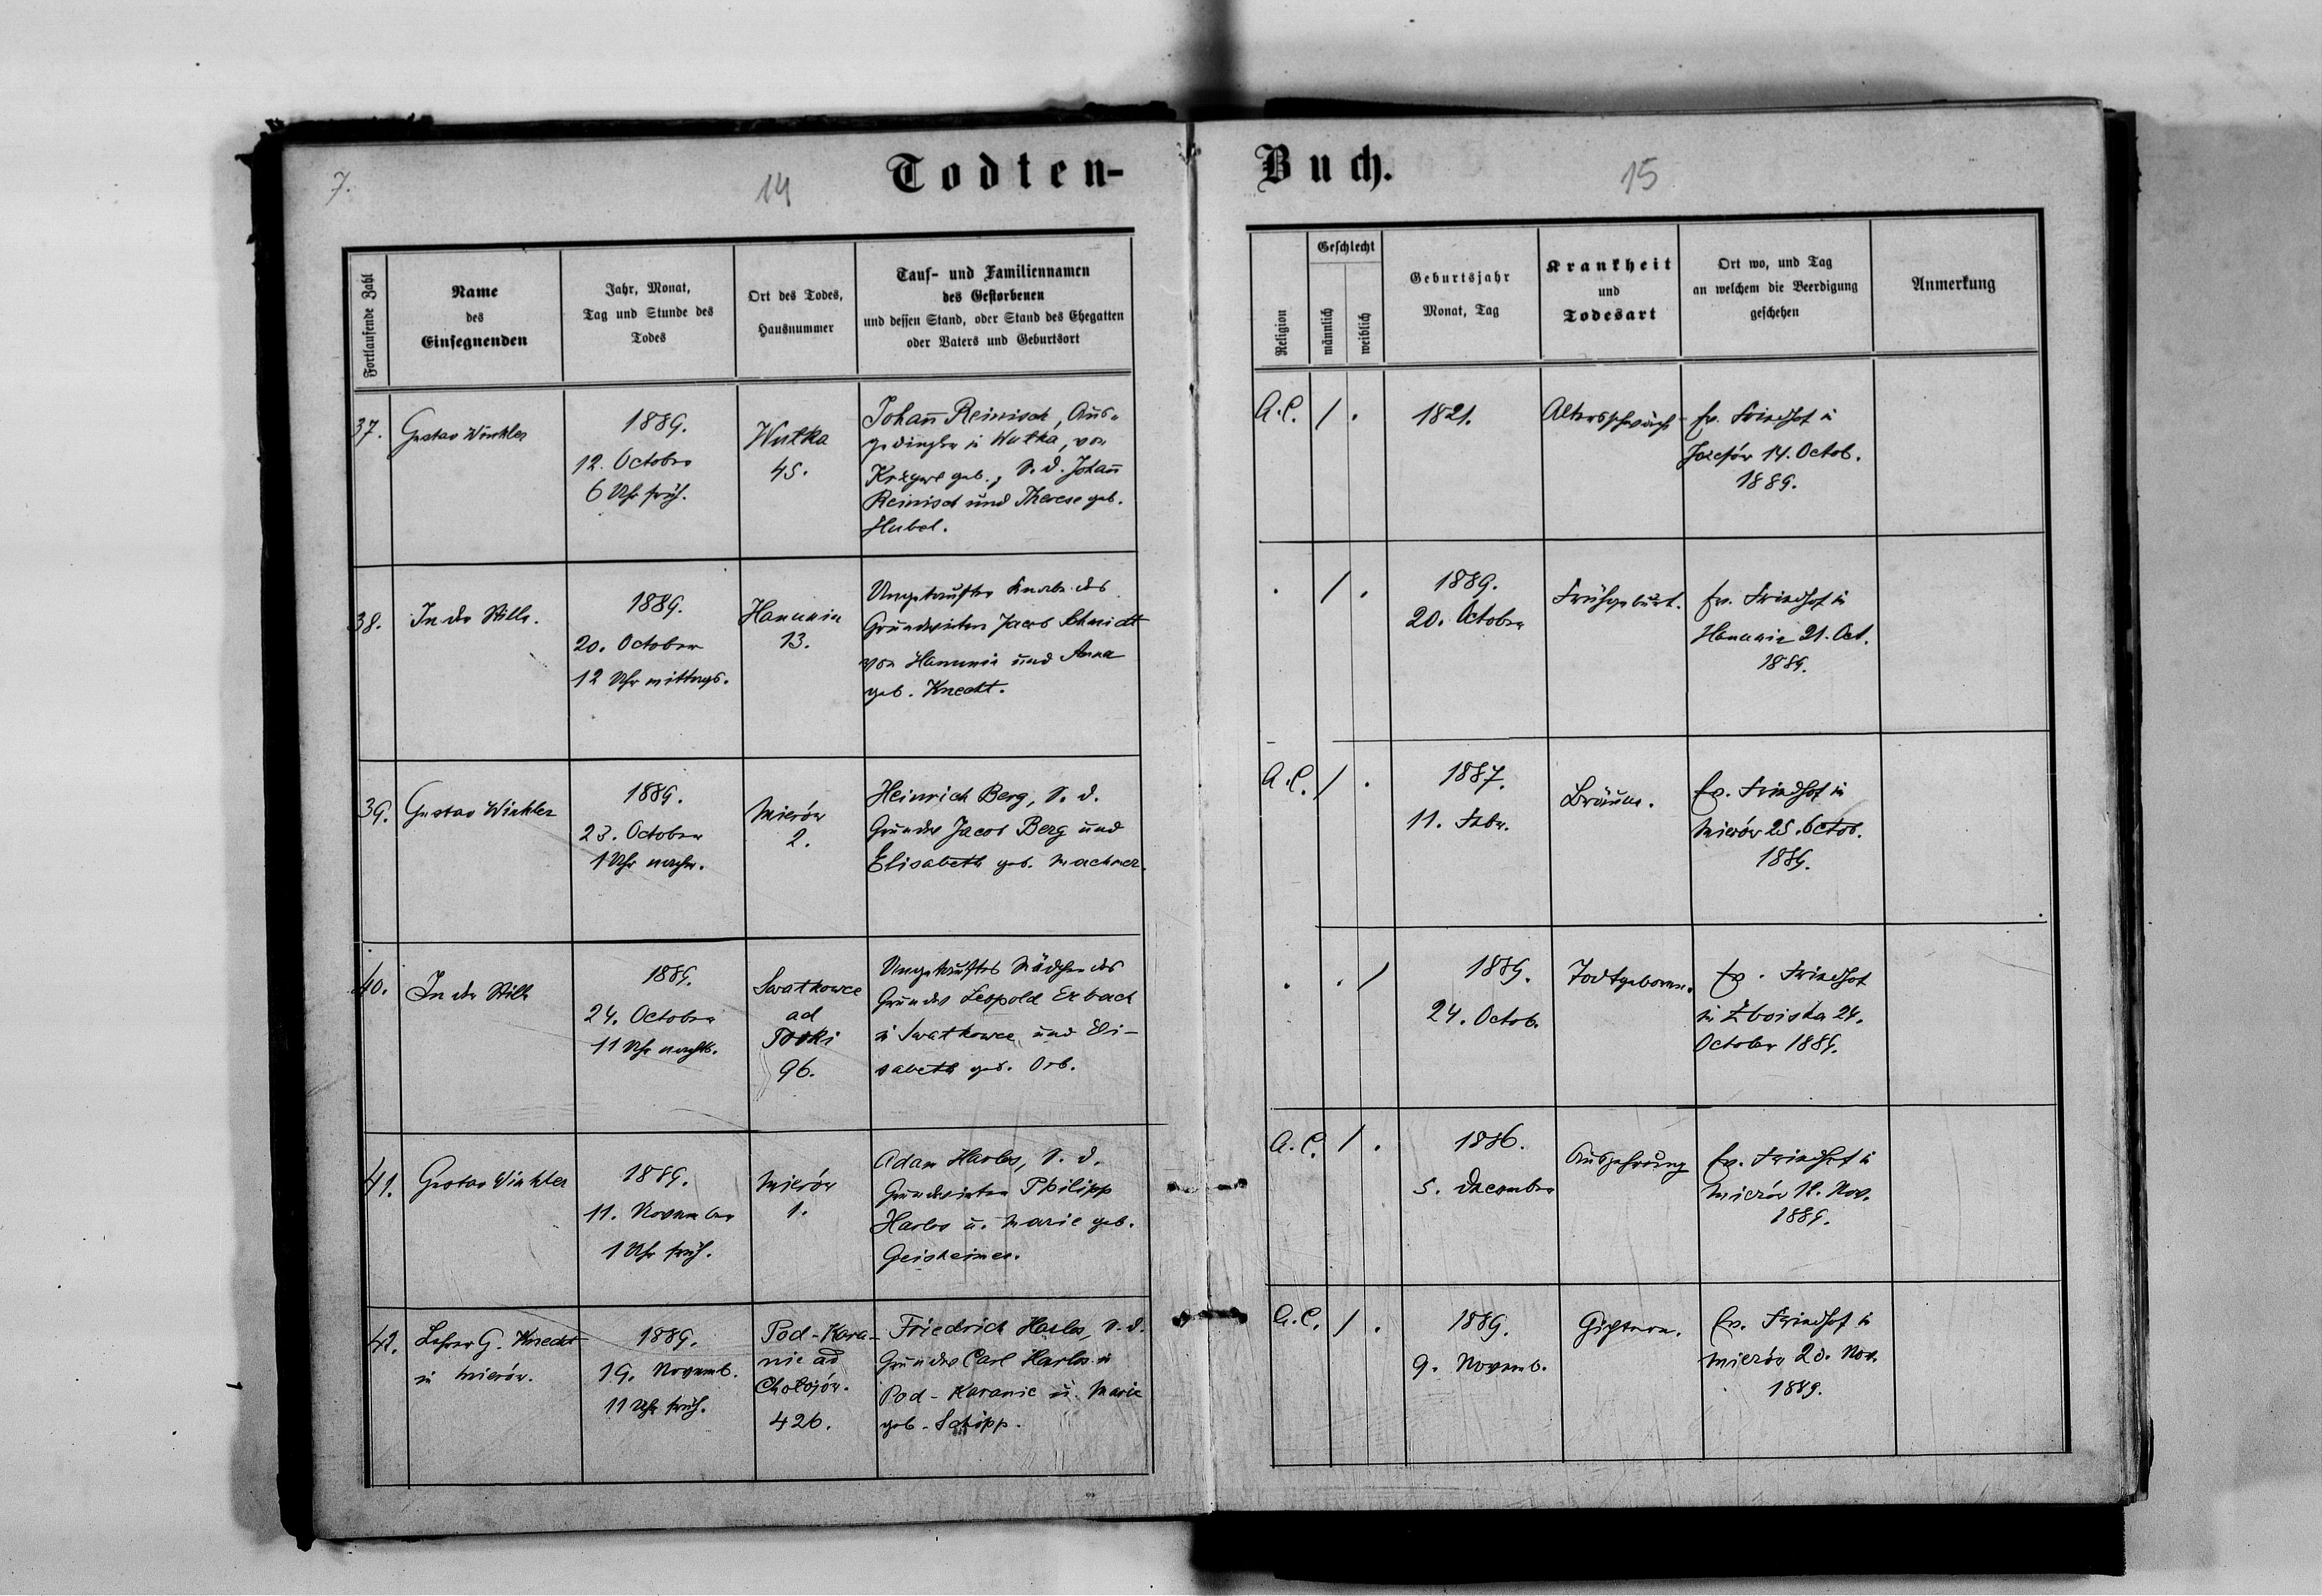 7.
14
Todten-
Buch.
15
Fortlaufende Zahl
Name
des
Einsegnenden
Jahr, Monat,
Tag und Stunde des
Todes
Ort des Todes,
Hausnummer
Tauf- und Familiennamen
des Gestorbenen
und dessen Stand, oder Stand des Ehegatten
oder Vaters und Geburtsort
Religion
Geschlecht
männlich
weiblich
Geburtsjahr
Monat, Tag
Krankheit
und
Todesart
Ort wo, und Tag
an welchem die Beerdigung
geschehen
Anmerkung
37.
Gustav Winkler
1889.
12. October
6 Uhr früh.
Wutka
45.
Johañ Reinisch, Aus-
gedingter in Wutka, von
geb., S. d. Johañ
Reinisch und Therese geb.
Hubel.
A.C.
/ .
1821.
Altersschwäche
Ev. Friedhof in
Josefów 14. Octob.
1889.
38.
In der Stille.
1889.
20. October
12 Uhr mittags.
Hanunin
13.
Ungetaufter Knabe des
Grundwirten Jacob Schmidt
von Hanunin und Anna
geb. Knecht.
.
/ .
1889.
20. October
Frühgeburt.
Ev. Friedhof in
Hanunin 21. Oct.
1889.
39.
Gustav Winkler
1889.
23. October
1 Uhr nachm.
Mierów
2.
Heinrich Berg, S. d.
Grundw Jacob Berg und
Elisabeth geb. Machner.
A.C.
/ .
1887.
11. Febr.
Bräune.
Ev. Friedhof in
Mierów 25. Octob.
1889.
40.
In der Stille
1889.
24. October
11 Uhr nachts.
Swatkowce
ad
Toski
96.
Ungetauftes Mädchen des
Grundw Leopold Erbach
in Swatkowce und Eli-
sabeth geb. Orb.
.
. /
1889.
24. Octob.
Todtgeboren.
Ev. Friedhof
in Zboiska 24.
October 1889.
41.
Gustav Winkler
1889.
11. November
1 Uhr früh.
Mierów
1.
Adam Harlos, S. d.
Grundwirten Philipp
Harlos u. Marie geb.
Geisheimer.
A.C.
/ .
1886.
5. December
Auszehrung
Ev. Friedhof in
Mierów 12. Nov.
1889.
42.
Lehrer G. Knecht
in Mierów.
1889.
19. Novemb.
11 Uhr früh.
Pod-Kara-
nie ad
Chołojów.
426.
Friedrich Harlos, S. d.
Grundw Carl Harlos in
Pod-Karanie u. Marie
geb. Schöpp.
A.C.
/ .
1889.
9. Novemb.
Gichtern.
Ev. Friedhof in
Mierów 20. Nov.
1889.